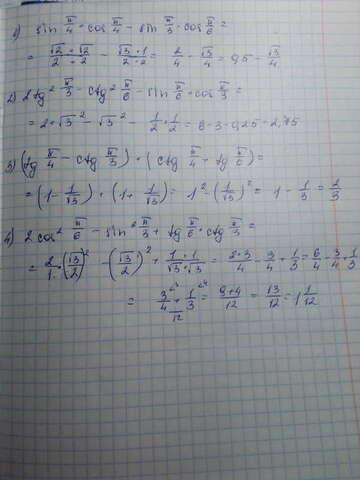 1) sin π/4 · cos π/4 − sin π/3 · cos π/6 =
= √2·√2/2·2 − √3·1/2·2 = 2/4 − √3/4 = 0,5 − √3/4
2) 2tg² π/3 − ctg² π/6 − sin π/6 · cos π/3 =
= 2·√3² − √3² − 1/2·1/2 = 6−3−0,25 = 2,75
3) (tg π/4 − ctg π/3) · (ctg π/4 + tg π/6) =
= (1 − 1/√3) · (1 + 1/√3) = 1² − (1/√3)² = 1 − 1/3 = 2/3
4) 2cos² π/6 − sin² π/3 + tg π/6 · ctg π/3 =
= 2/1·(√3/2)² − (√3/2)² + 1·1/√3·√3 = 2·3/4 − 3/4 + 1/3 = 6/4 − 3/4 + 1/3
= 3/4 + 1/3 = 9+4/12 = 13/12 = 1 1/12
12